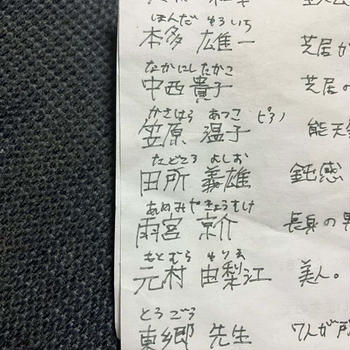 ほんだ そういち
本多 雄一 芝居が
なかにしたかこ
中西貴子 芝居の
かさはら あつこ ピアノ
笠原 温子 能天
たどころ よしお
田所 義雄 鈍感
あめみやきょうすけ
雨宮 京介 長身の男
もとむら ゆりえ
元村 由梨江 美人。
とうごう
東郷 先生 7人が所